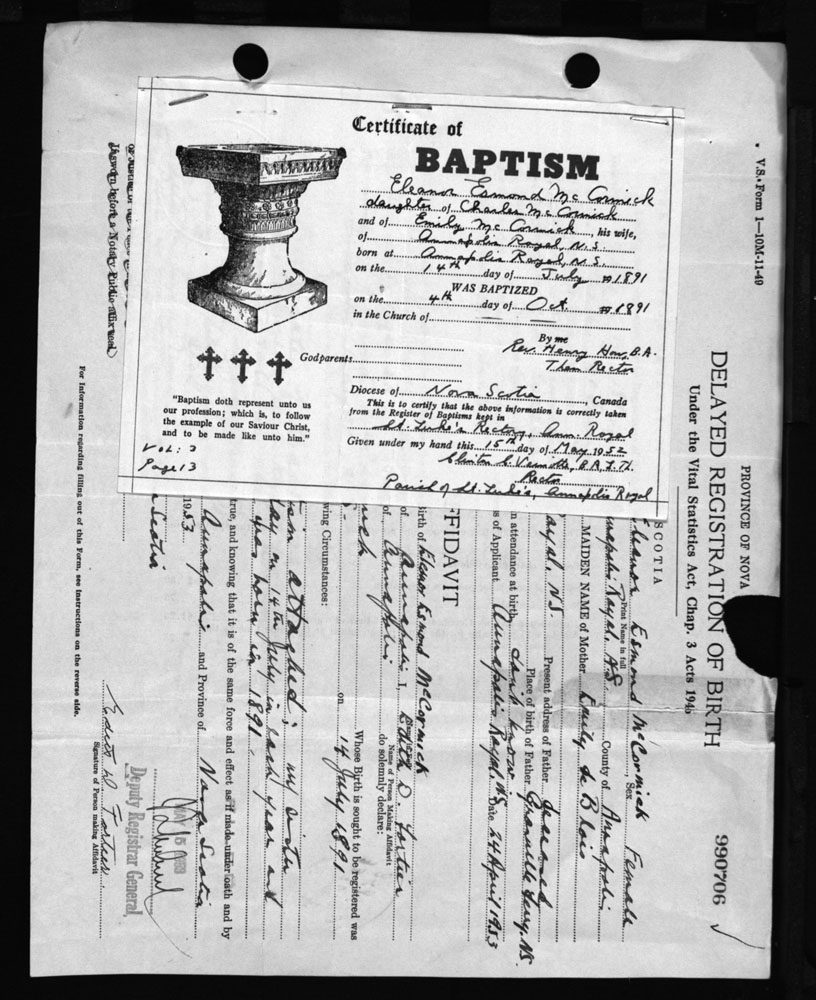 Certificate of
BAPTISM
Eleanor Esmond McCormick
daughter of Charles McCormick
and of Emily McCormick, his wife,
of Annapolis Royal, N.S.
born at Annapolis Royal, N.S.
on the 14th day of July 1891
WAS BAPTIZED
on the 4th day of Oct 1891
in the Church of
By me
Rev. Henry How, B.A.
Then Rector
Godparents
Diocese of Nova Scotia, Canada
This is to certify that the above information is correctly taken
from the Register of Baptisms kept in
St. Luke's Rectory, Ann. Royal
Given under my hand this 15th day of May 1952
Rector
Parish of St. Luke's, Annapolis Royal
"Baptism doth represent unto us
our profession; which is, to follow
the example of our Saviour Christ,
and to be made like unto him."
Vol: 3
Page 13
V.S. Form 1—10M-11-49
PROVINCE OF NOVA SCOTIA
DELAYED REGISTRATION OF BIRTH
990706
Under the Vital Statistics Act, Chap. 3 Acts
Eleanor Esmond McCormick, Sex Female
Print Name in full
Annapolis Royal, N.S. County of Annapolis
MAIDEN NAME of Mother Emily de Blois
Royal, N.S. Present address of Father deceased
in attendance at birth don't know Place of birth of Father Granville Ferry, N.S.
of Applicant Annapolis Royal, N.S. Date 24 April 1953
FFIDAVIT
birth of Eleanor Esmond McCormick
of Annapolis I, Edith D. Fortier
Name of Person Making Affidavit
of Annapolis do solemnly declare:
Whose Birth is sought to be registered was
on 14 July 1891
wing Circumstances:
attached; my sister
day on 14th July in each year and
was born in 1891.
true, and knowing that it is of the same force and effect as if made under oath and by
Annapolis and Province of Nova Scotia
1953
Scotia
Deputy Registrar General
Edith D. Fortier
Signature of Person making Affidavit
For Information regarding filling out of this Form, see instructions on the reverse side.